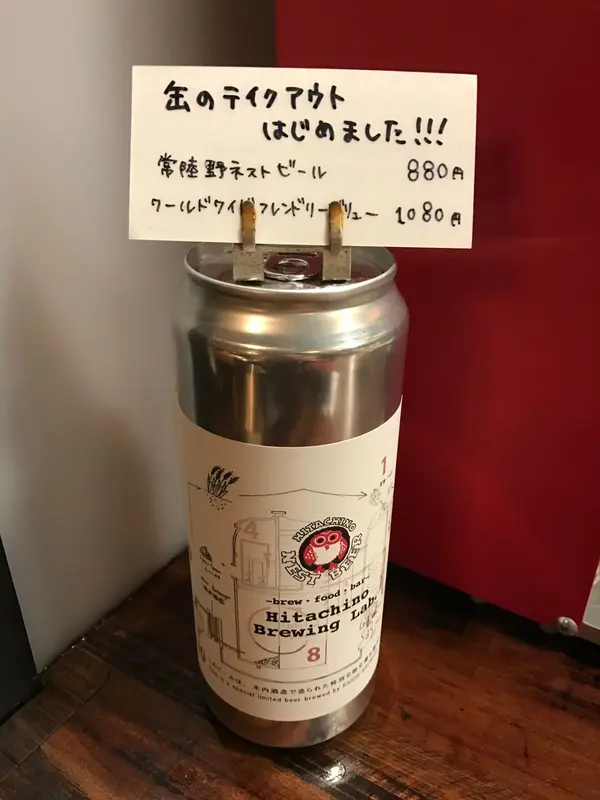 缶のテイクアウト
はじめました!!!
常陸野ネストビール 880円
ワールドワイドフレンドリーブリュー 1080円
1
4
HITACHINO
NEST BEER
-brew・food・bar-
Hitachino
Brewing Lab.
8
は、木内酒造で造られた特別な限定
is a special limited beer brewed by